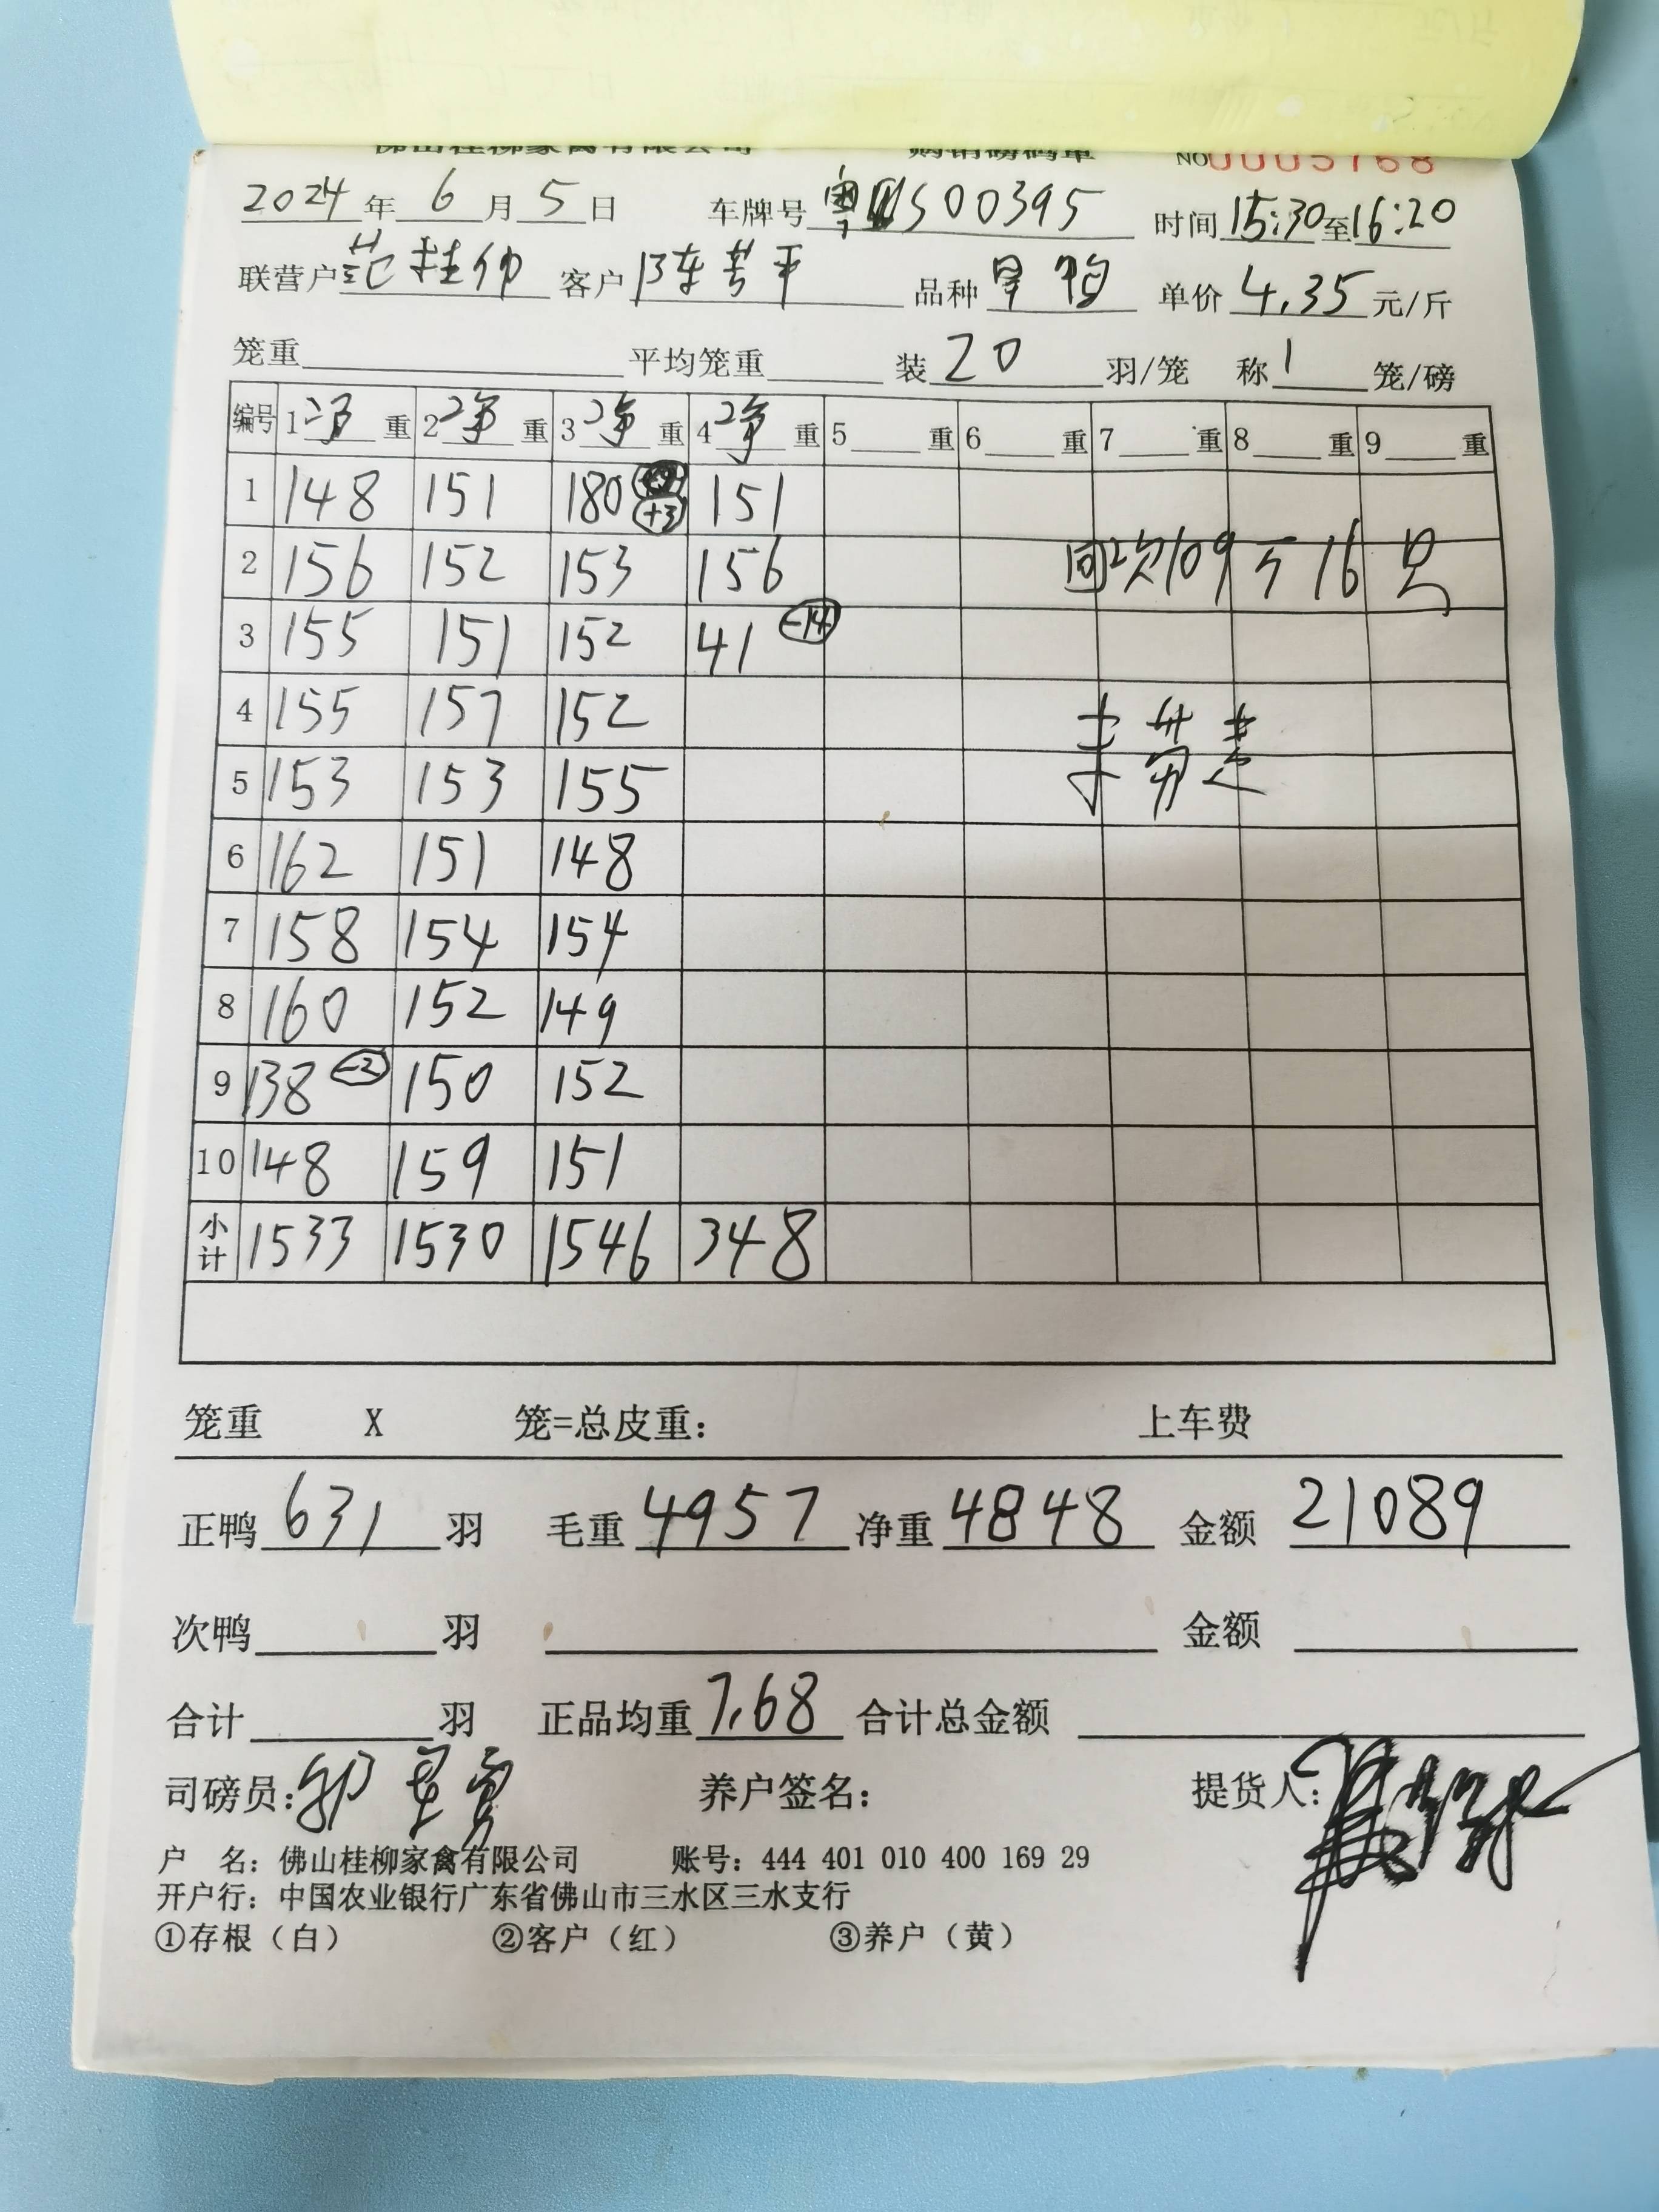 佛山桂柳家禽有限公司 购销磅码单 NO 0005768
2024年6月5日 车牌号粤S00395 时间15:30至16:20
联营户范桂仰 客户陈芳平 品种旱鸭 单价4.35元/斤
笼重 平均笼重 装20羽/笼 称1笼/磅
编号 1净重 2净重 3净重 4净重 5重 6重 7重 8重 9重
1 148 151 180 +3 151
2 156 152 153 156 回次109斤16只
3 155 151 152 41 -14
4 155 157 152
5 153 153 155
6 162 151 148
7 158 154 154
8 160 152 149
9 138 -2 150 152
10 148 159 151
小计 1533 1530 1546 348
笼重 X 笼=总皮重: 上车费
正鸭631羽 毛重4957 净重4848 金额21089
次鸭 羽 金额
合计 羽 正品均重7.68 合计总金额
司磅员: 养户签名: 提货人:
户 名: 佛山桂柳家禽有限公司 账号: 444 401 010 400 169 29
开户行: 中国农业银行广东省佛山市三水区三水支行
①存根（白） ②客户（红） ③养户（黄）